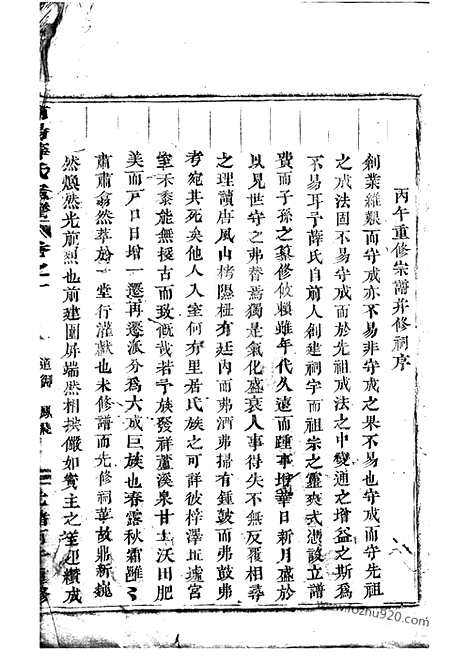 丙午重修宗譜并修祠序
創業維艱而守成亦不易非守成之果不易也守成而守先祖
之成法固不易守成而於先祖成法之中變通之增益之斯爲
不易耳予薛氏自前人創建祠宇而祖宗之靈爽式憑設立譜
費而子孫之纂修攸賴雖年代久遠而踵事增華日新月盛於
以見世守之弗替焉獨是氣化盛衰人事得失不無反覆相尋
之理讀唐風山樞隰杻有廷內而弗洒弗掃有鐘鼓而弗鼓弗
考宛其死矣他人入室何有里居氏族之可詳彼梓澤坵墟宮
室禾黍能無援古而致慨哉若予族發祥蘆溪泉甘土沃田肥
美而戶口日增一遷再遷派分爲大成巨族也春露秋霜雝雝
肅肅翕然萃於一堂行灌獻也未修譜而先修祠華故鼎新巍
然煥然光前烈也前建圍屏端然相挨儼如賓主之笙迎纘成
薛氏宗譜 卷之一
道御 鳳飛
www.fozhu920.com